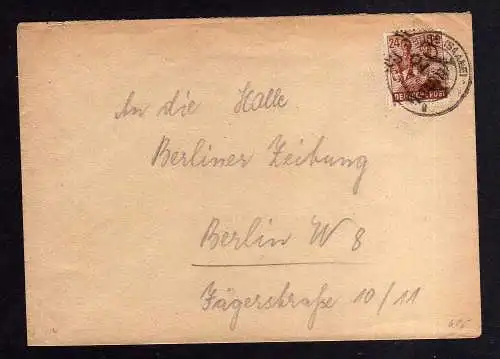 24
(SAALE)
DEUTSCHE POST
An die Halle
Berliner Zeitung
Berlin W 8
Jägerstraße 10/11